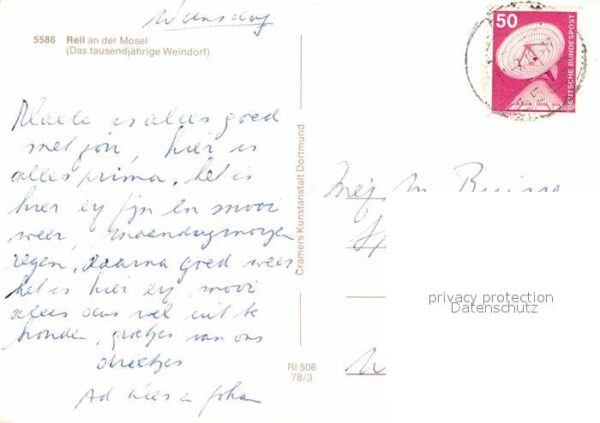 Woensdag
5586 Reil an der Mosel
(Das tausendjährige Weindorf)
50
DEUTSCHE BUNDESPOST
is alles goed
met jou, hier is
alles prima, het is
hier erg fijn en mooi
weer, maandagmorgen
regen, daarna goed weer
het is hier erg mooi
alles dus wel uit te
houden, groetjes van ons
drietjes
Ad Kees en Johan
Cramers Kunstanstalt Dortmund
RI 506
78/3
Mej
privacy protection
Datenschutz